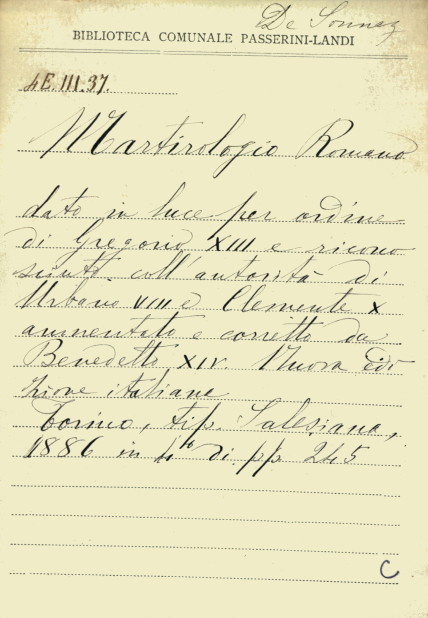 De Sonnaz
BIBLIOTECA COMUNALE PASSERINI-LANDI
4E.III.37.
Martirologio Romano
dato in luce per ordine
di Gregorio XIII e ricono
sciuto coll'autorità di
Urbano VIII e Clemente X
aumentato e corretto da
Benedetto XIV. Nuova edi
zione italiana
Torino, tip. Salesiana,
1886 in 4to di pp 245
C